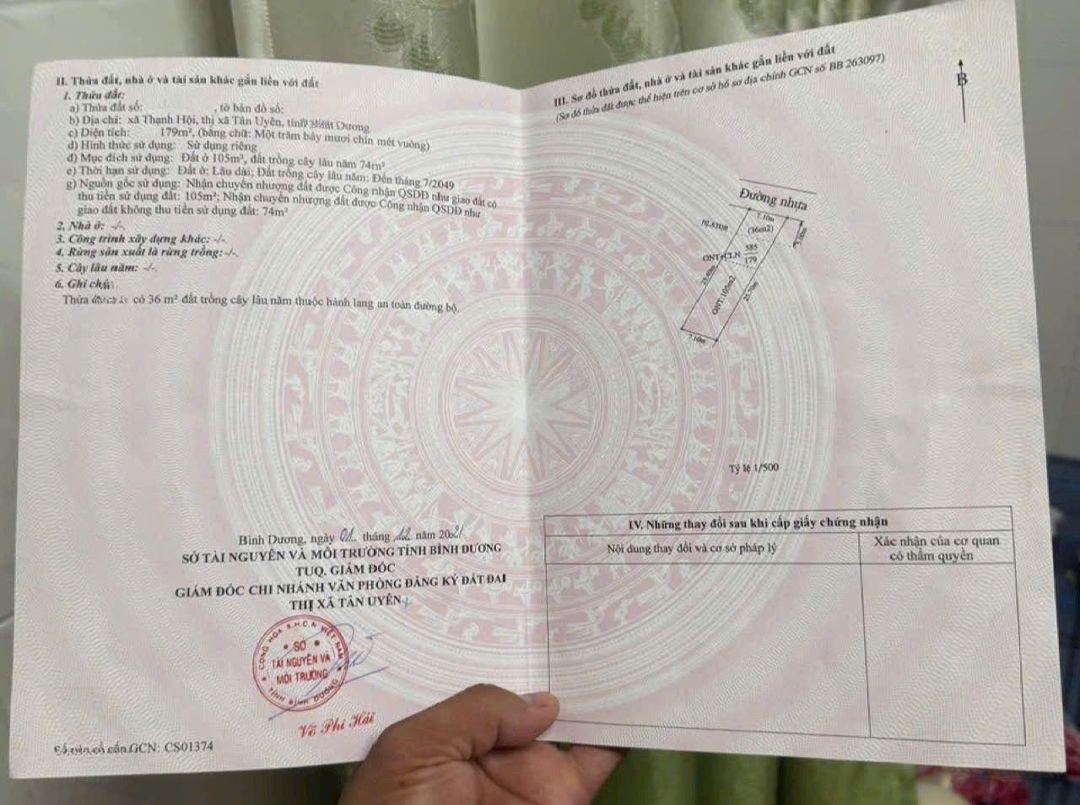 II. Thửa đất, nhà ở và tài sản khác gắn liền với đất
1. Thửa đất:
a) Thửa đất số: , tờ bản đồ số:
b) Địa chỉ: xã Thạnh Hội, thị xã Tân Uyên, tỉnh Bình Dương
c) Diện tích: 179m², (bằng chữ: Một trăm bảy mươi chín mét vuông)
d) Hình thức sử dụng: Sử dụng riêng
đ) Mục đích sử dụng: Đất ở 105m², đất trồng cây lâu năm 74m²
e) Thời hạn sử dụng: Đất ở: Lâu dài; Đất trồng cây lâu năm: Đến tháng 7/2049
g) Nguồn gốc sử dụng: Nhận chuyển nhượng đất được Công nhận QSDĐ như giao đất có
thu tiền sử dụng đất: 105m²; Nhận chuyển nhượng đất được Công nhận QSDĐ như
giao đất không thu tiền sử dụng đất: 74m²
2. Nhà ở: -/-.
3. Công trình xây dựng khác: -/-.
4. Rừng sản xuất là rừng trồng: -/-.
5. Cây lâu năm: -/-.
6. Ghi chú:
Thửa có 36 m² đất trồng cây lâu năm thuộc hành lang an toàn đường bộ.
Bình Dương, ngày 01 tháng 12 năm 2021
SỞ TÀI NGUYÊN VÀ MÔI TRƯỜNG TỈNH BÌNH DƯƠNG
TUQ. GIÁM ĐỐC
GIÁM ĐỐC CHI NHÁNH VĂN PHÒNG ĐĂNG KÝ ĐẤT ĐAI
THỊ XÃ TÂN UYÊN
CỘNG HÒA X.H.C.N VIỆT NAM
SỞ
TÀI NGUYÊN VÀ
MÔI TRƯỜNG
TỈNH BÌNH DƯƠNG
Võ Phi Hải
Số vào sổ cấp GCN: CS01374
III. Sơ đồ thửa đất, nhà ở và tài sản khác gắn liền với đất
(Sơ đồ thửa đất được thể hiện trên cơ sở hồ sơ địa chính GCN số BB 263097)
B
Đường nhựa
7.10m
HLATĐB
(36m2)
5.00m
ONT+CLN
585
179
ONT: 105m2
7.10m
Tỷ lệ 1/500
IV. Những thay đổi sau khi cấp giấy chứng nhận
Nội dung thay đổi và cơ sở pháp lý
Xác nhận của cơ quan
có thẩm quyền